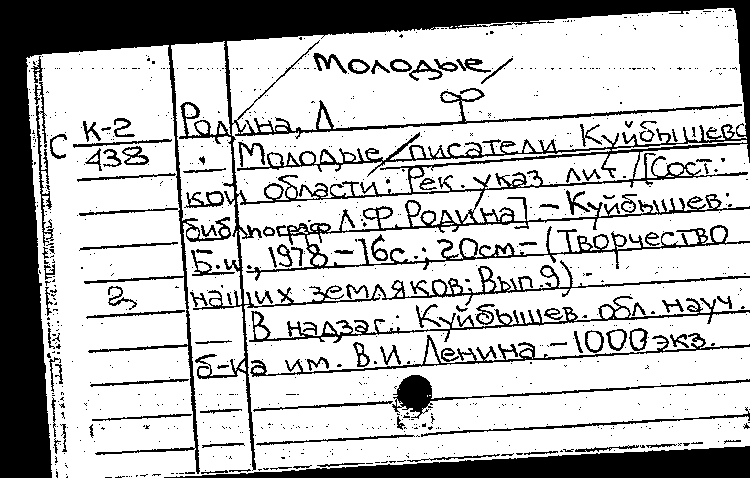 Молодые
С К-2
438
Родина, Л
Молодые писатели Куйбышевс
кой области: Рек. указ. лит. /[Сост.:
библиограф Л.Ф. Родина]. - Куйбышев:
Б.и., 1978. - 16с.; 20см. - (Творчество
2 наших земляков; Вып. 9). -
В надзаг.: Куйбышев. обл. науч.
б-ка им. В.И. Ленина. - 1000 экз.